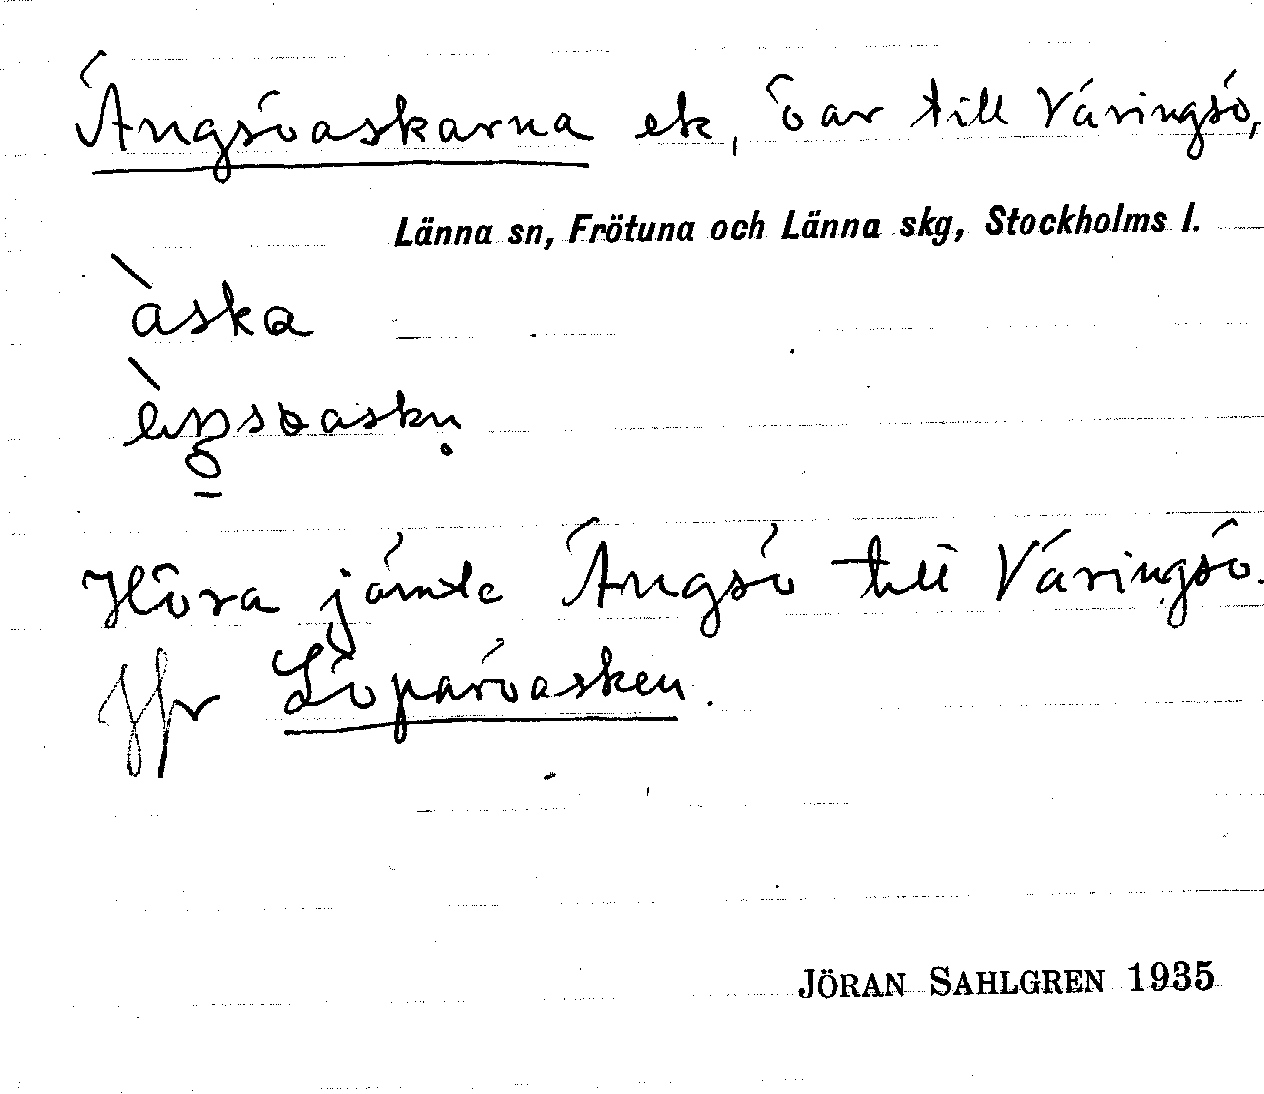 Ängsöaskarna ek, öar till Väringsö,
Länna sn, Frötuna och Länna skg, Stockholms l.
àska
Höra jämte Ängsö till Väringsö.
Jfr Löparöasken.
JÖRAN SAHLGREN 1935